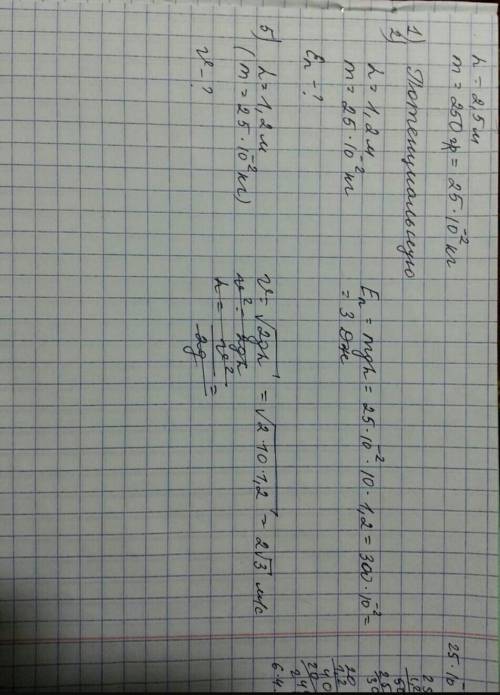 h = 2,5 м
m = 250 гр = 25·10⁻² кг
1)
2) Потенциальную
h = 1,2 м
m = 25·10⁻² кг
Eп - ?
Eп = mgh = 25·10⁻²·10·1,2 = 300·10⁻² =
= 3 Дж
5) h = 1,2 м
(m = 25·10⁻² кг)
v - ?
v = √2gh = √2·10·1,2 = 2√3 м/с
v² = 2gh
h = v²/2g =
25·10⁻